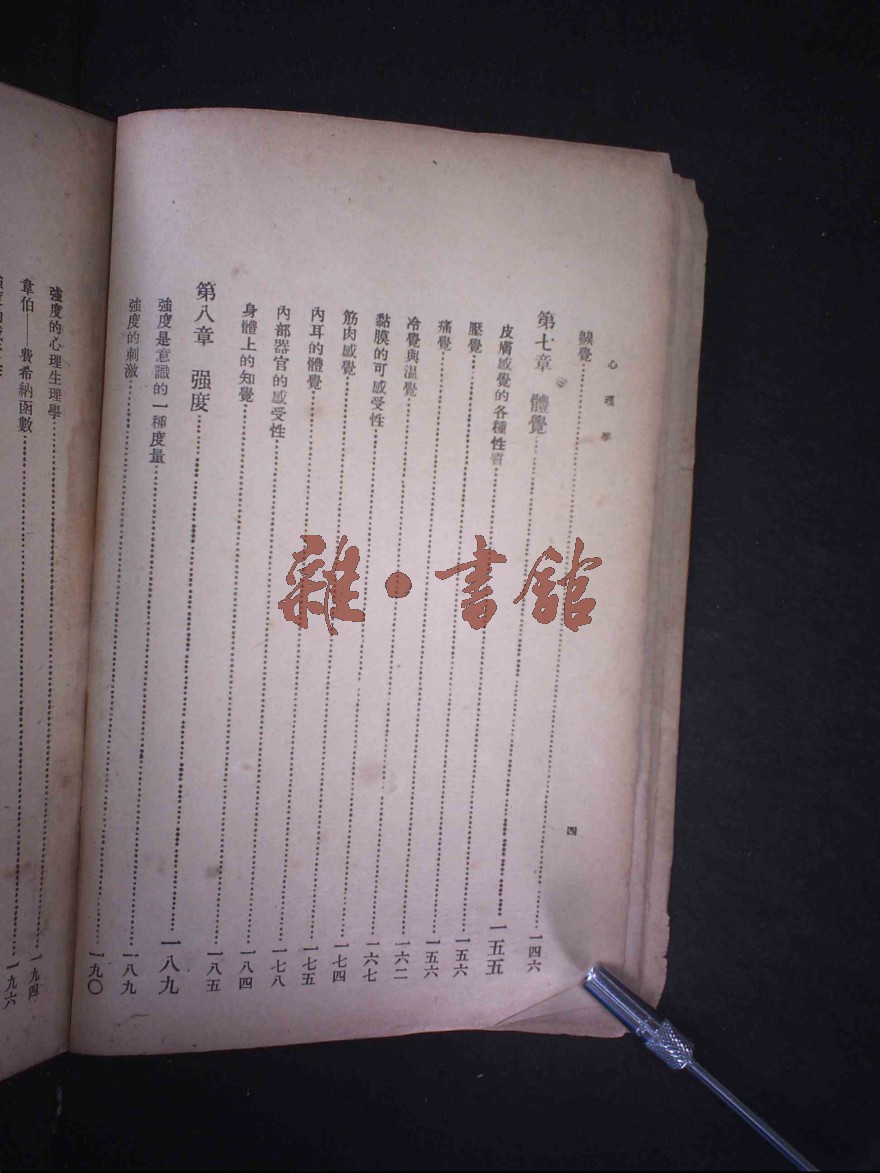 心理學
四
覺……一四六
第七章 體覺……一五五
皮膚感覺的各種性質……一五六
壓覺……一五六
痛覺……一六二
冷覺與溫覺……一六七
黏膜的可感受性……一七四
筋肉感覺……一七五
內耳的體覺……一七八
內部器官的感受性……一八四
身體上的知覺……一八五
第八章 强度……一八九
強度是意識的一種度量……一八九
強度的刺激……一九〇
強度的心理生理學……一九四
韋伯——費希納函數……一九六
雜·書館